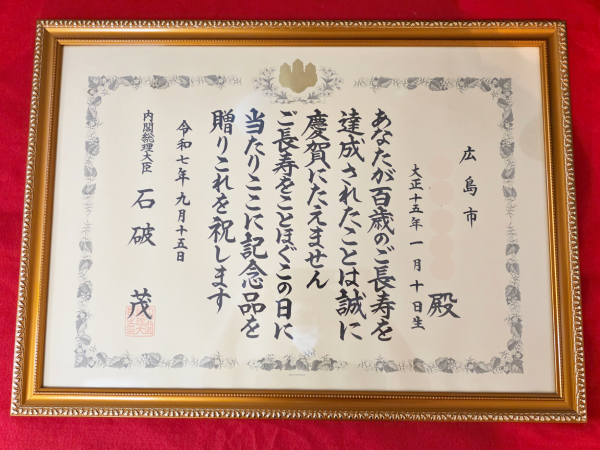 広島市
殿
大正十五年一月十日生
あなたが百歳のご長寿を
達成されたことは誠に
慶賀にたえません
ご長寿をことほぐこの日に
当たりここに記念品を
贈りこれを祝します
令和七年九月十五日
内閣総理大臣 石破 茂